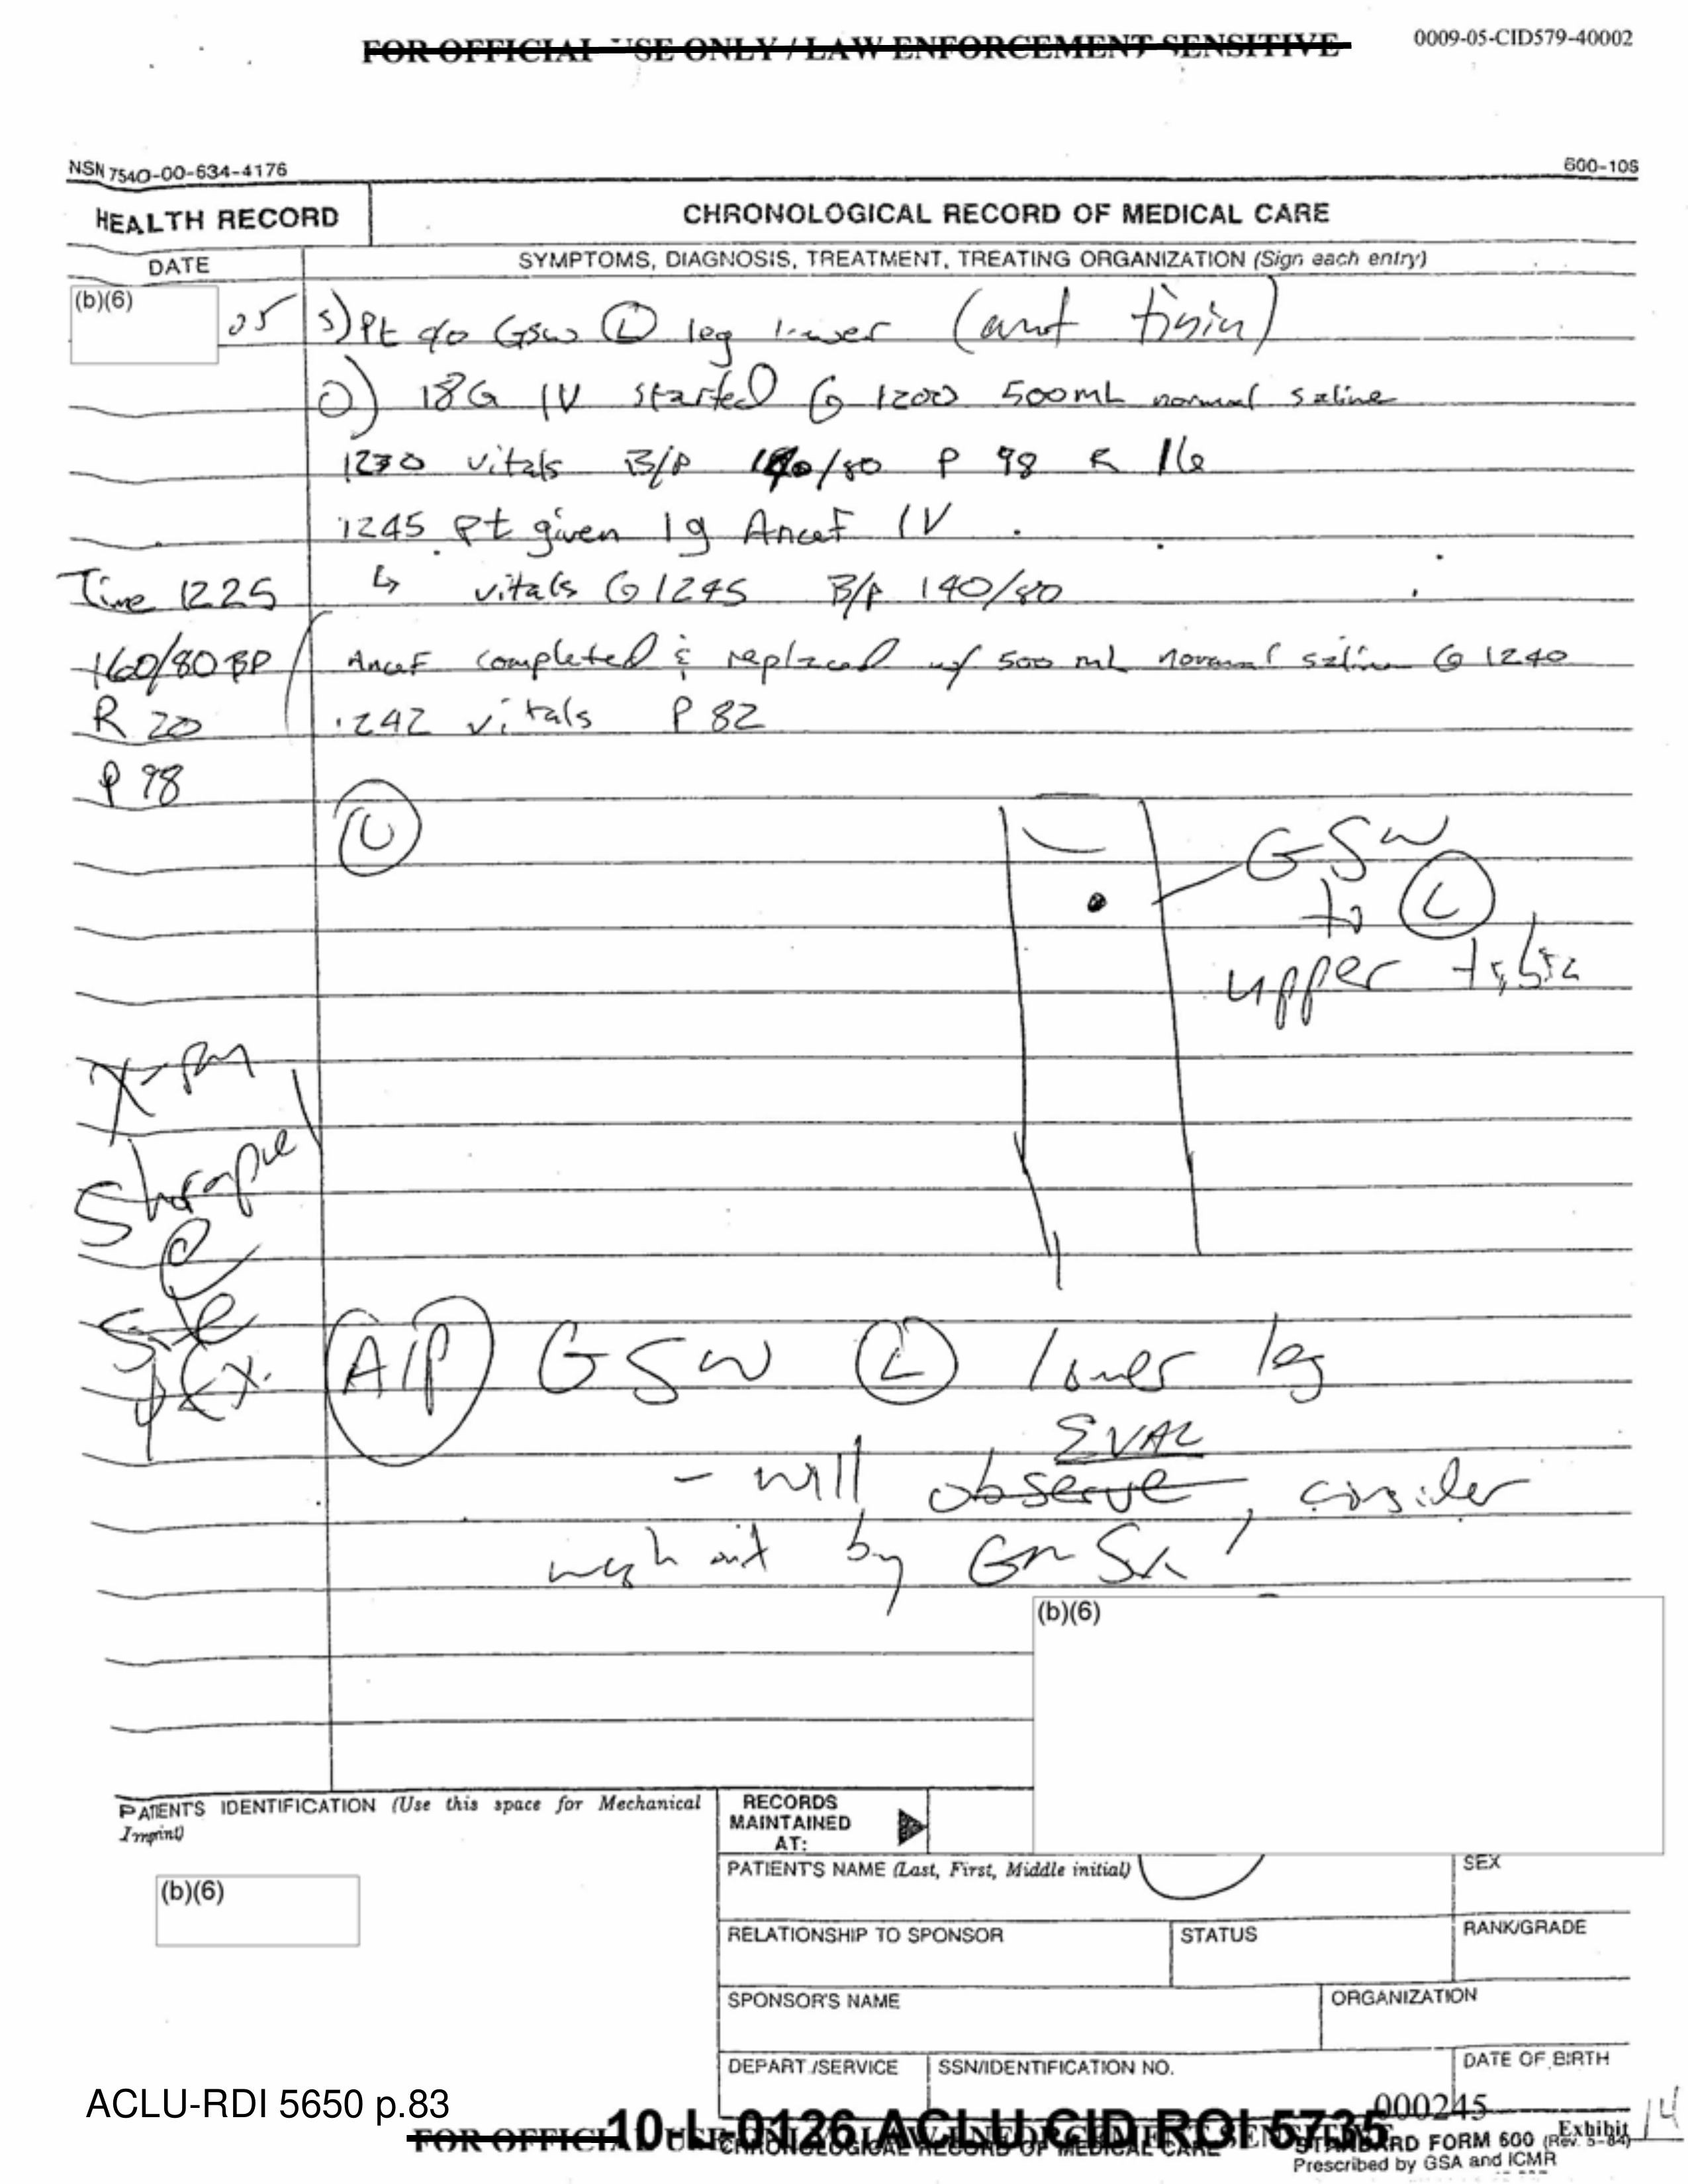 FOR OFFICIAL USE ONLY / LAW ENFORCEMENT SENSITIVE
0009-05-CID579-40002
NSN 7540-00-634-4176
600-108
HEALTH RECORD
CHRONOLOGICAL RECORD OF MEDICAL CARE
DATE
SYMPTOMS, DIAGNOSIS, TREATMENT, TREATING ORGANIZATION (Sign each entry)
(b)(6)
05 S) Pt c/o GSW L leg lower (ant
O) 18G IV started @ 1200 500mL normal saline
1230 vitals B/P /80 P 98 R 16
1245 Pt given 1g Ancef IV
Time 1225 ↳ vitals @ 1245 B/P 140/80
160/80 BP Ancef completed & replaced w/ 500 mL normal saline @ 1240
R 20 1242 vitals P 82
P 98
L
GSW
to L
upper tibia
X-ray
Shrapnel
@
Site
A/P GSW L lower leg
EVAL
- will observe, consider
wash out by Gen Sx
(b)(6)
PATIENT'S IDENTIFICATION (Use this space for Mechanical
Imprint)
(b)(6)
RECORDS
MAINTAINED
AT:
PATIENT'S NAME (Last, First, Middle initial)
SEX
RELATIONSHIP TO SPONSOR
STATUS
RANK/GRADE
SPONSOR'S NAME
ORGANIZATION
DEPART./SERVICE
SSN/IDENTIFICATION NO.
DATE OF BIRTH
ACLU-RDI 5650 p.83
000245
10-L-0126 ACLU CID ROI 5735
FOR OFFICIAL
CHRONOLOGICAL RECORD OF MEDICAL CARE
Exhibit 14
STANDARD FORM 600 (Rev. 5-84)
Prescribed by GSA and ICMR